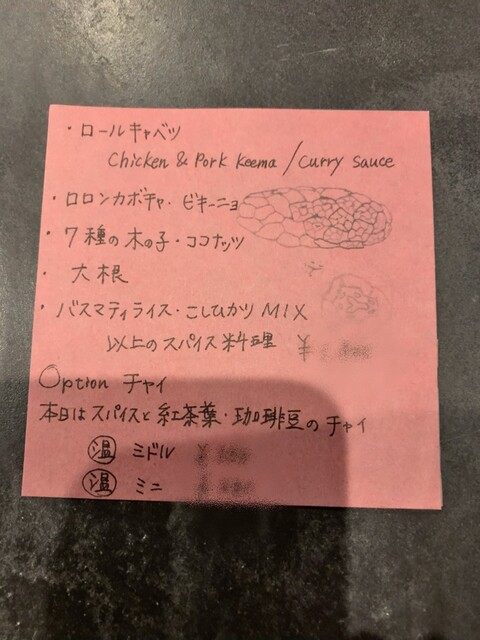 ・ロールキャベツ
Chicken & Pork Keema / Curry sauce
・ロロンカボチャ・ビキーニョ
・7種の木の子・ココナッツ
・大根
・バスマティライス・こしひかりMIX
以上のスパイス料理 ¥
Option チャイ
本日はスパイスと紅茶葉・珈琲豆のチャイ
温 ミドル ¥
温 ミニ ¥